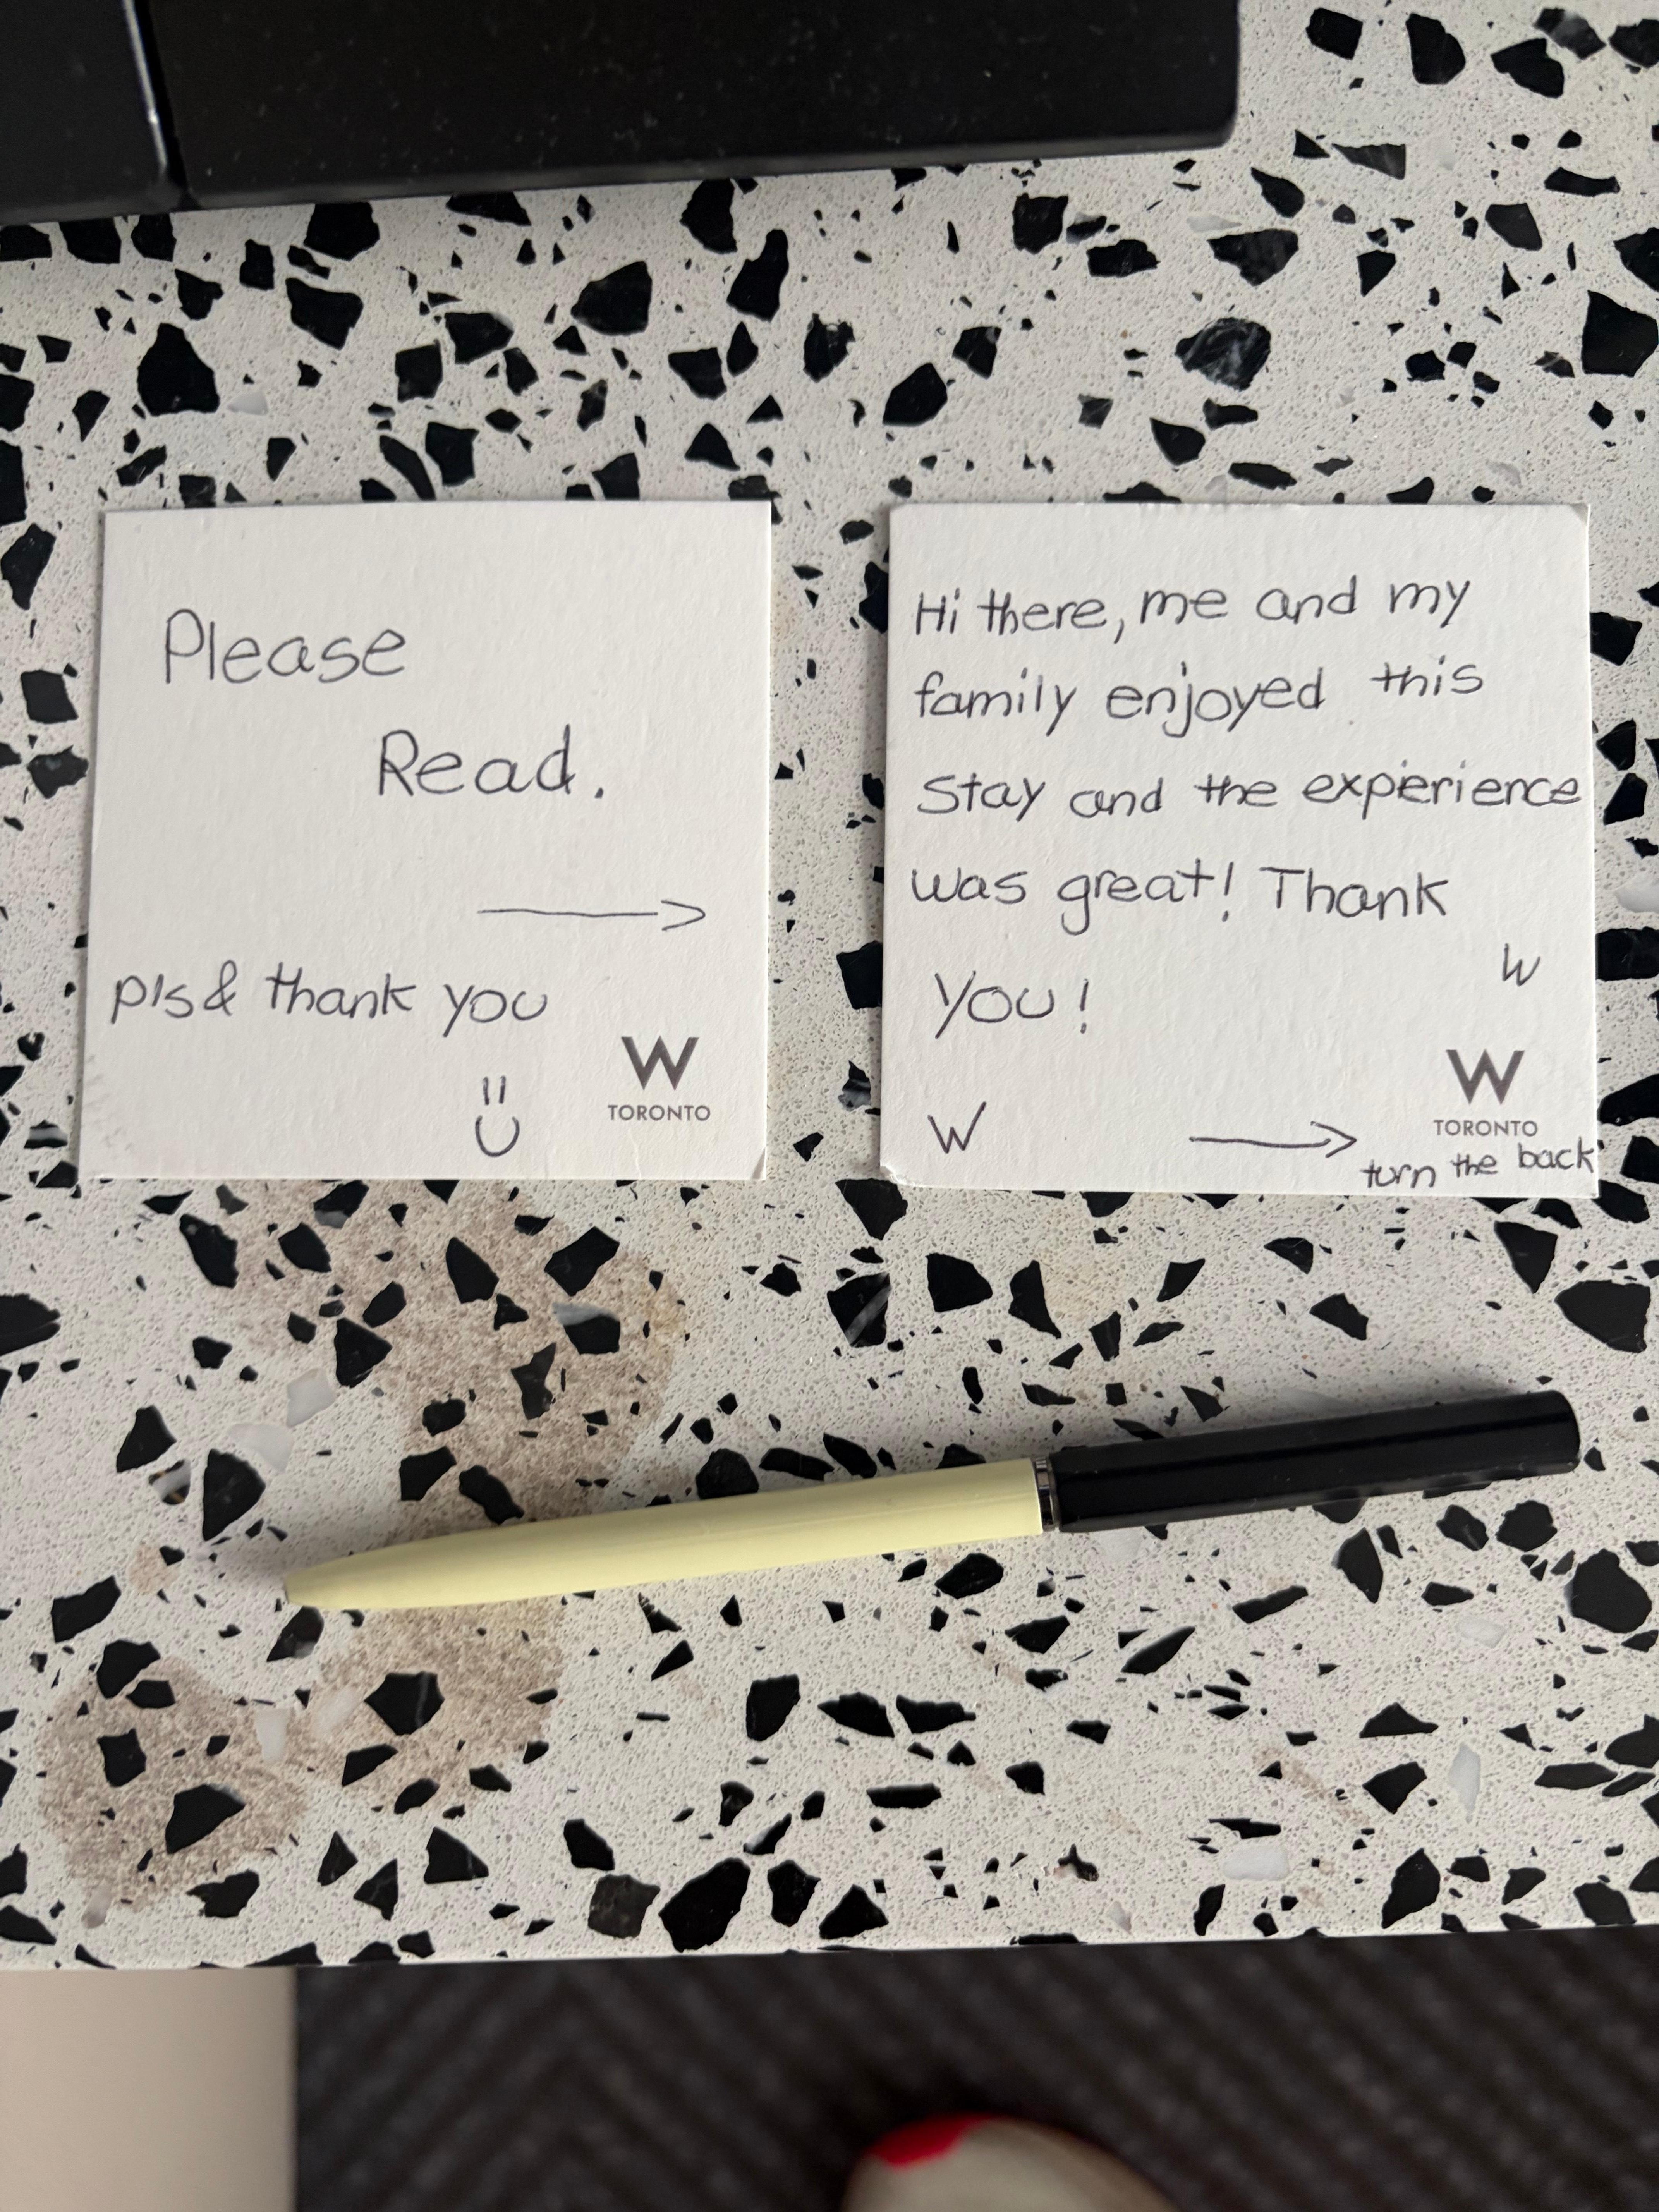 Please
Read.
pls & thank you
W
TORONTO
Hi there, me and my
family enjoyed this
Stay and the experience
was great! Thank
you!
W
W
W
TORONTO
turn the back